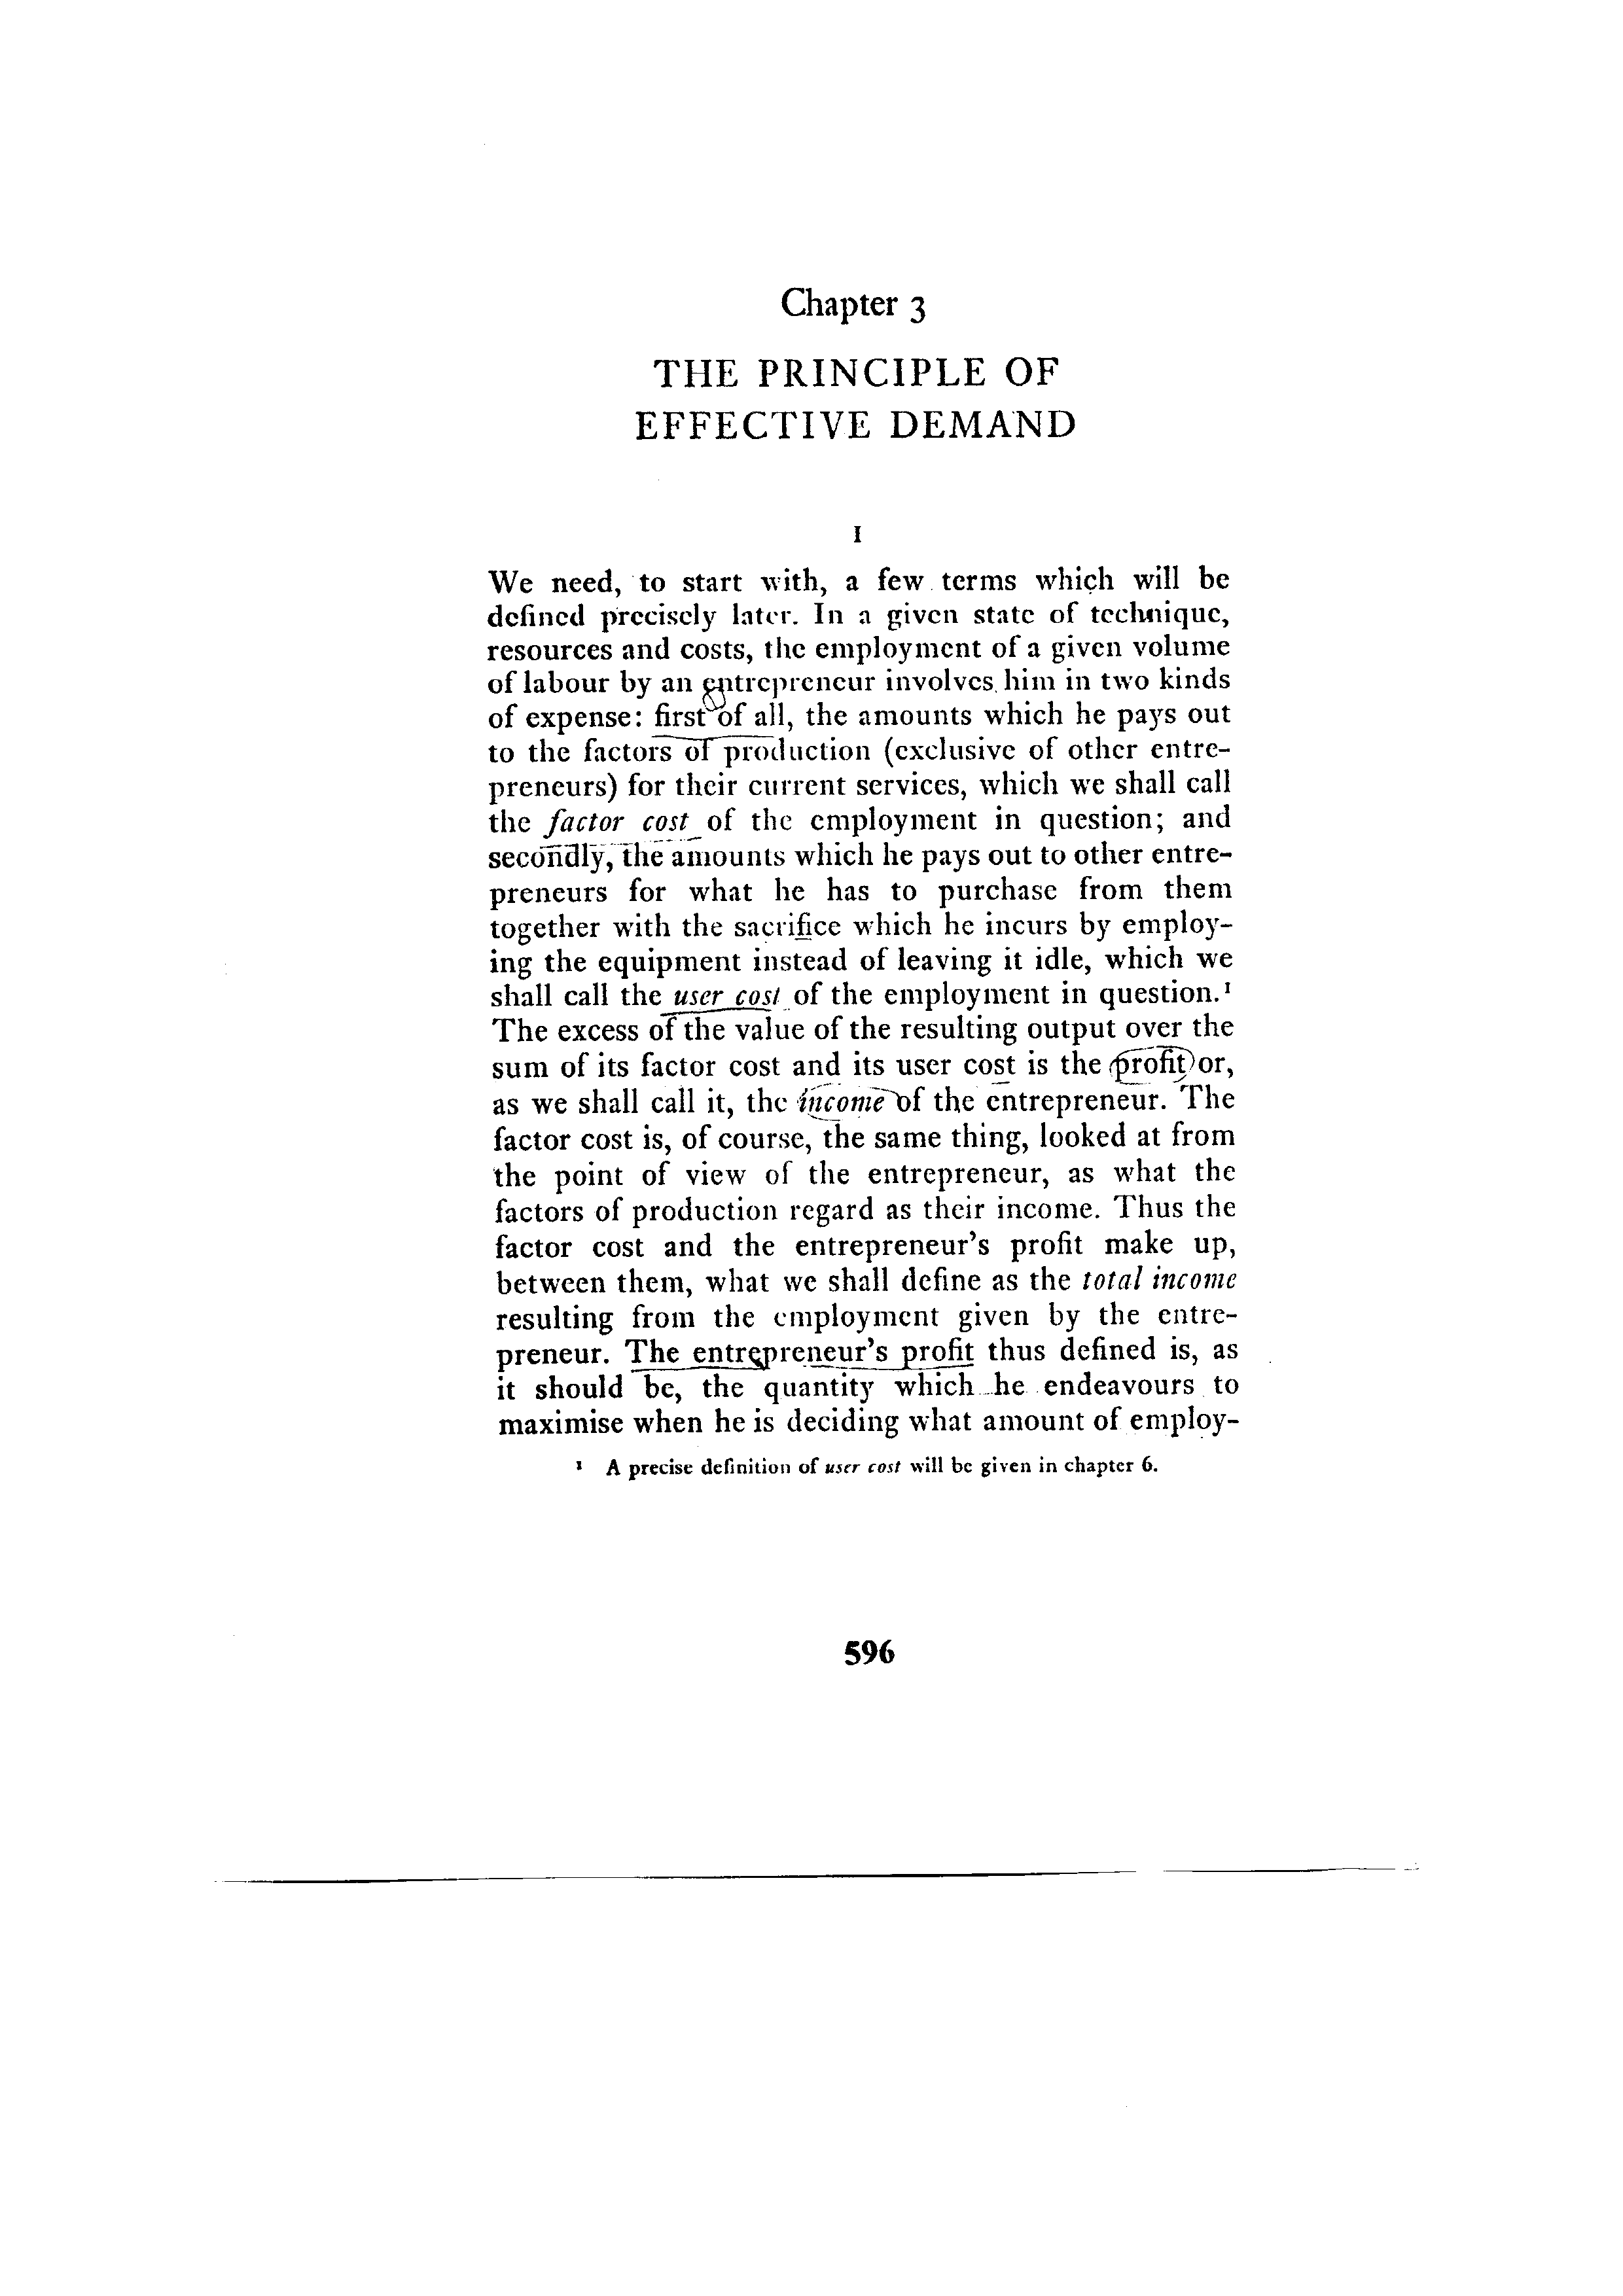 Chapter 3
THE PRINCIPLE OF
EFFECTIVE DEMAND
I
We need, to start with, a few terms which will be
defined precisely later. In a given state of technique,
resources and costs, the employment of a given volume
of labour by an entrepreneur involves him in two kinds
of expense: first of all, the amounts which he pays out
to the factors of production (exclusive of other entre-
preneurs) for their current services, which we shall call
the factor cost of the employment in question; and
secondly, the amounts which he pays out to other entre-
preneurs for what he has to purchase from them
together with the sacrifice which he incurs by employ-
ing the equipment instead of leaving it idle, which we
shall call the user cost of the employment in question.¹
The excess of the value of the resulting output over the
sum of its factor cost and its user cost is the profit or,
as we shall call it, the income of the entrepreneur. The
factor cost is, of course, the same thing, looked at from
the point of view of the entrepreneur, as what the
factors of production regard as their income. Thus the
factor cost and the entrepreneur's profit make up,
between them, what we shall define as the total income
resulting from the employment given by the entre-
preneur. The entrepreneur's profit thus defined is, as
it should be, the quantity which he endeavours to
maximise when he is deciding what amount of employ-
¹ A precise definition of user cost will be given in chapter 6.
596